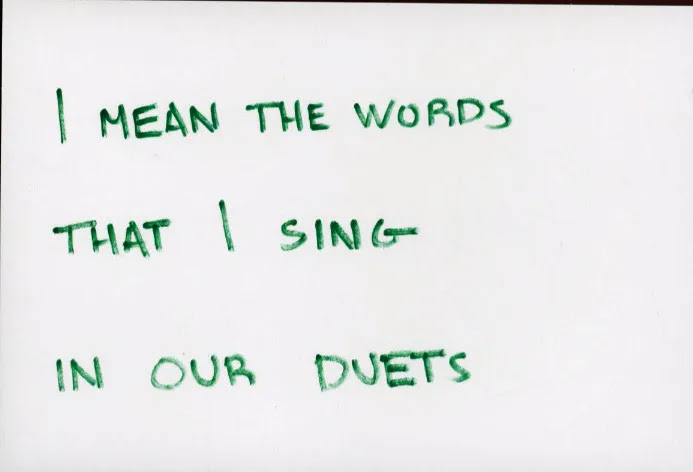 I MEAN THE WORDS
THAT I SING
IN OUR DUETS